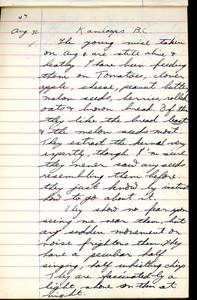 47
Aug 30 Kamloops B.C.
The young mice taken
on Aug 2 are still alive &
healthy. I have been feeding
them on Tomatoes, clover
apple, cheese, peanut butter
melon seeds, berries, rolled
oats & brown bread. Of these
they like the bread least
& the melon seeds most.
They extract the kernel very
expertly, though I'm sure
they never saw any seeds
resembling them before.
they just know by instinct
how to go about it.
They show no fear upon
seeing me near them, but
any sudden movement or
noise frightens them. They
have a peculiar half
singing, half whistling chirp.
They are fascinated by a
light, shone on them at
night.